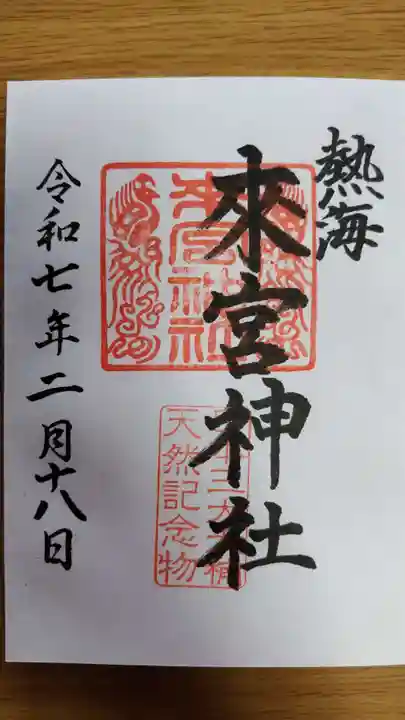 熱海
來宮神社
來宮神社
天然記念物
令和七年二月十八日